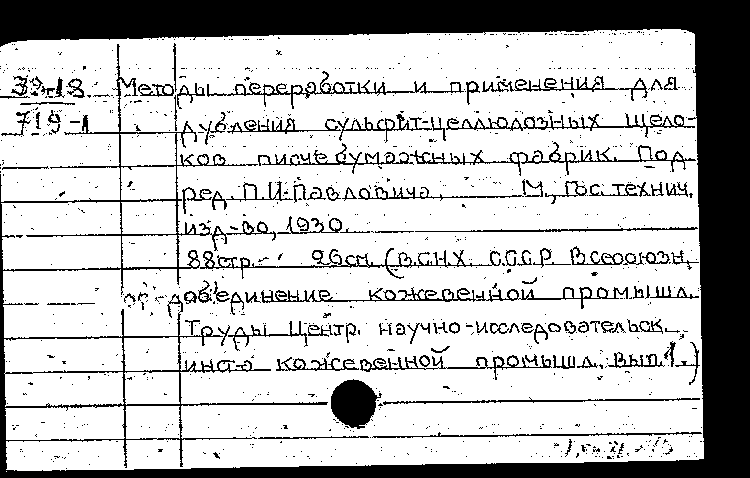 39-18 Методы переработки и применения для
719-1 дубления сульфит-целлюлозных щело-
ков писчебумажных фабрик. Под
ред. П.И.Павловича. М., Гос. технич.
изд-во, 1930.
88стр. 26см. (В.С.Н.Х. С.С.С.Р. Всесоюзн.
объединение кожевенной промышл.
Труды Центр. научно-исследовательск.
инст-а кожевенной промышл. вып. 1.)